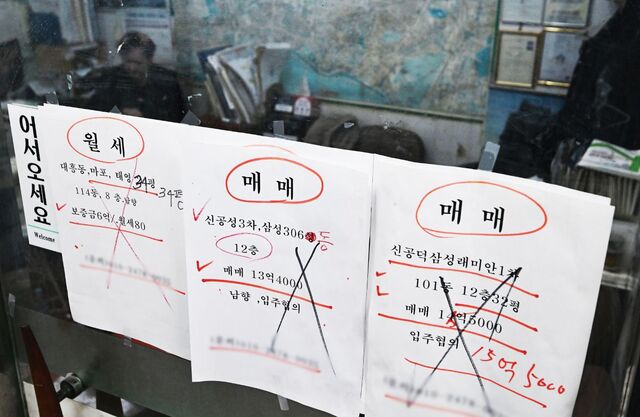 어서오세요
Welcome
월 세
대흥동, 마포, 태영 34평 34평
114동, 8 층, 남향
보증금6억/월세80
매 매
신공덕3차, 삼성306동
12층
매매 13억4000
남향 , 입주협의
매 매
신공덕삼성래미안1차
101동 12층32평
매매 14억5000
15억 5000
입주협의